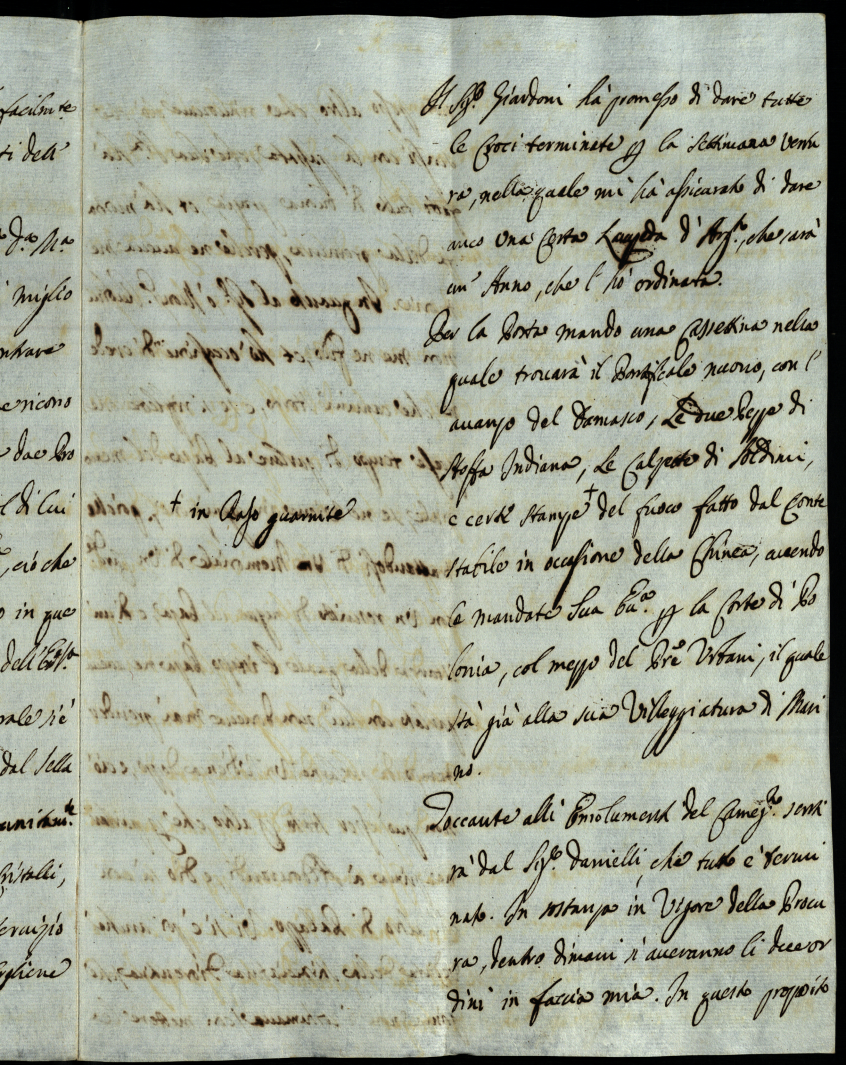 facilm.te
ti dell'
d.a N.a
miglio
ntrare
e ricono
due Pro
l di lui
, ciò che
o in que
dell'Em.ƒ.a
rale s'è
dal Sella
unitam.te
Cristalli,
servizio
gliene
Il Sig.r Giardoni hà promesso di dare tutte
le Croci terminate ꝑ la settimana ventu
ra, nella quale mi hà assicurato di dare
anco una certa d'Arg.to, che sarà
un' Anno, che l' hò ordinata.
Per la Posta mando una Cassettina nella
quale trovarà il Pontificale nuovo, con l'
avanzo del Damasco, Le due Pezze di
stoffa Indiana, Le Calzette di Soldini,
e certe stampe † del fuoco fatto dal Conte
† in Raso guarnite
stabile in occasione della Chinea, avendo
le mandate Sua Em.a ꝑ la Corte di Po
lonia, col mezzo del Pre. Urbani, il quale
stà già alla sua Villeggiatura di Mari
no.
Toccante alli Emolumenti del senti
rà dal Sig.r Danielli, che tutto è termi
nato. In sostanza in Vigore della Procu
ra, dentro dimani s'averanno li due or
dini in faccia mia. In questo proposito